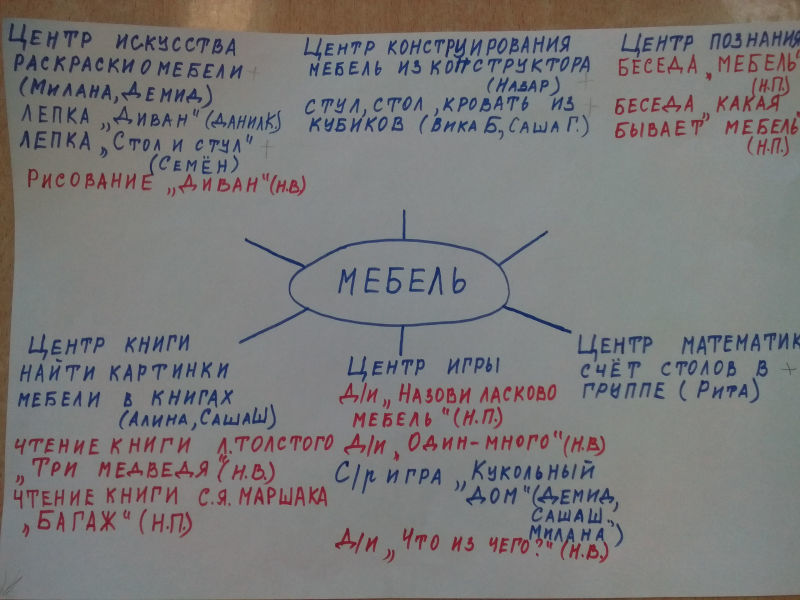 ЦЕНТР ИСКУССТВА
РАСКРАСКИ О МЕБЕЛИ +
(МИЛАНА, ДЕМИД)
ЛЕПКА „ДИВАН" (ДАНИЛ К.)
ЛЕПКА „СТОЛ И СТУЛ" +
(СЕМЁН)
РИСОВАНИЕ „ДИВАН" (Н.В)
ЦЕНТР КОНСТРУИРОВАНИЯ
МЕБЕЛЬ ИЗ КОНСТРУКТОРА
(НАЗАР) +
СТУЛ, СТОЛ, КРОВАТЬ ИЗ +
КУБИКОВ (ВИКА Б, САША Г.)
ЦЕНТР ПОЗНАНИЯ
БЕСЕДА „МЕБЕЛЬ"
(Н.П.)
БЕСЕДА „КАКАЯ
БЫВАЕТ МЕБЕЛЬ"
(Н.П.)
МЕБЕЛЬ
ЦЕНТР КНИГИ
НАЙТИ КАРТИНКИ
МЕБЕЛИ В КНИГАХ
(АЛИНА, САША Ш)
ЧТЕНИЕ КНИГИ Л.ТОЛСТОГО
„ТРИ МЕДВЕДЯ" (Н.В.)
ЧТЕНИЕ КНИГИ С.Я. МАРШАКА
„БАГАЖ" (Н.П.)
ЦЕНТР ИГРЫ
Д/И „НАЗОВИ ЛАСКОВО
МЕБЕЛЬ" (Н.П.)
Д/И „ОДИН-МНОГО" (Н.В)
С/Р ИГРА „КУКОЛЬНЫЙ
ДОМ" (ДЕМИД,
САША Ш.,
МИЛАНА)
Д/И „ЧТО ИЗ ЧЕГО?" (Н.В.)
ЦЕНТР МАТЕМАТИК
СЧЁТ СТОЛОВ В +
ГРУППЕ (РИТА)